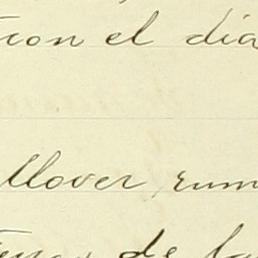 cion el dia
llover, rum
de la